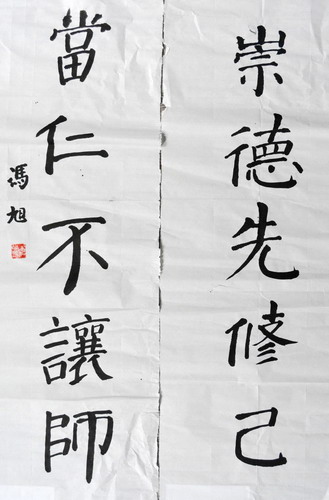 崇德先修己
當仁不讓師
馮旭